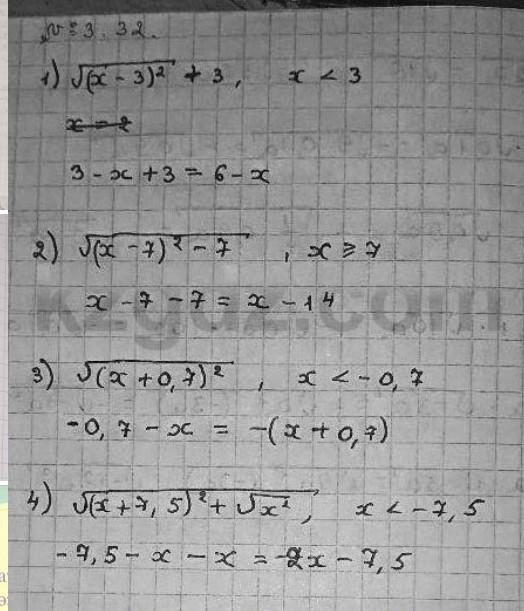 № 3.32.
1) √(x - 3)² + 3, x < 3
x = 2
3 - x + 3 = 6 - x
2) √(x - 7)² - 7 , x ≥ 7
x - 7 - 7 = x - 14
3) √(x + 0,7)² , x < -0,7
-0,7 - x = -(x + 0,7)
4) √(x + 7,5)² + √x², x < -7,5
-7,5 - x - x = -2x - 7,5